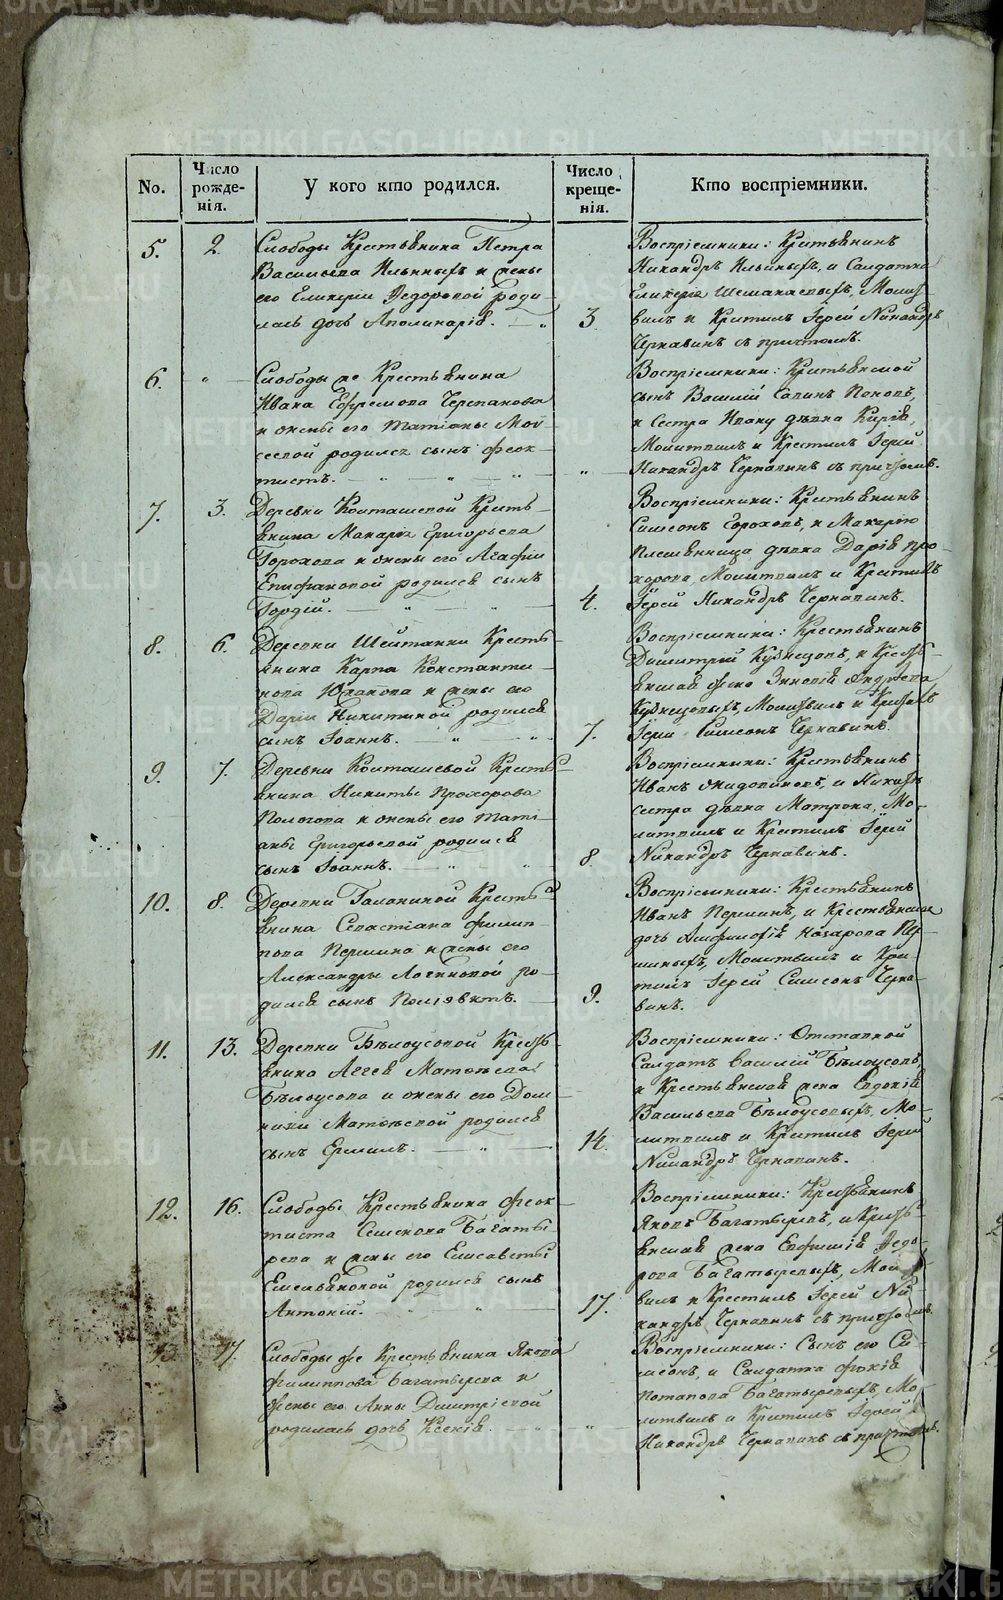 No.
Число рожде-
нія.
У кого кто родился.
Число креще-
нія.
Кто воспріемники.
5.
2.
Слободы Крестьянина Петра
Васильева Ильиныхъ и жены
его Гликеріи Ѳедоровой роди
лась дочь Аполинарія.
3.
Воспріемники: Крестьянинъ
Никандръ Ильиныхъ, и Салдатка
Гликерія Шемакиныхъ, Молит
вилъ и Крестилъ Іерей Никандръ
Чернавинъ съ причтомъ.
6.
"
Слободы же Крестьянина
Ивана Ефремова Черепанова
и жены его Татіаны Мои
сеевой родился сынъ Ѳеок
тистъ.
"
Воспріемники: Крестьянской
сынъ Василій Савинъ Поповъ,
и Сестра Ивану дѣвка Кирія,
Молитвилъ и Крестилъ Іерей
Никандръ Чернавинъ съ причтомъ.
7.
3.
Деревни Колташевой Кресть
янина Макарія Григорьева
Горохова и жены его Агафіи
Епифановой родился сынъ
Гордій.
4.
Воспріемники: Крестьянинъ
Симеонъ Гороховъ, и Макарію
племянница дѣвка Дарія Про-
хорова, Молитвилъ и Крестилъ
Іерей Никандръ Чернавинъ.
8.
6.
Деревни Шейтанки Кресть
янина Карпа Константи
нова Юлакова и жены его
Даріи Никитиной родился
сынъ Іоаннъ.
7.
Воспріемники: Крестьянинъ
Димитрій Кузнецовъ, и Кресть
янская жена Зиновія Андреева
Кузнецовыхъ, Молитвилъ и Крестилъ
Іерей Симеонъ Чернавинъ.
9.
7.
Деревни Колташевой Кресть
янина Никиты Прохорова
Пологова и жены его Тати
аны Григорьевой родился
сынъ Іоаннъ.
8.
Воспріемники: Крестьянинъ
Иванъ и Никит
сестра дѣвка Матрона, Мо
литвилъ и Крестилъ Іерей
Никандръ Чернавинъ.
10.
8.
Деревни Галаниной Кресть
янина Севастіана Филип
пова Першина и жены его
Александры Логиновой ро
дился сынъ Поліевктъ.
9.
Воспріемники: Крестьянинъ
Иванъ Першинъ, и Крестьянская
дочь Назарова Пер
шиныхъ, Молитвилъ и Кре
стилъ Іерей Симеонъ Черна
винъ.
11.
13.
Деревни Бѣлоусовой Кресть
янина Аггея Матвѣева
Бѣлоусова и жены его Дом
ники Матвѣевой родился
сынъ Ермилъ.
14.
Воспріемники: Отставной
Салдатъ Василій Бѣлоусовъ,
и Крестьянская жена Евдокія
Васильева Бѣлоусовыхъ, Мо
литвилъ и Крестилъ Іерей
Никандръ Чернавинъ.
12.
16.
Слободы Крестьянина Ѳеок
тиста Семенова Багаты
рева и жены его Елисаветы
Емельяновой родился сынъ
Антоній.
17.
Воспріемники: Крестьянинъ
Яковъ Багатыревъ, и Кресть
янская жена Евфимія Ѳедо
рова Багатыревыхъ, Молит
вилъ и Крестилъ Іерей Ни
кандръ Чернавинъ съ причтомъ.
13.
17.
Слободы же Крестьянина Якова
Филиппова Багатырева и
жены его Анны Димитріевой
родилась дочь Ксенія.
"
Воспріемники: Сынъ его Си
меонъ, и Салдатка Фокія
Потапова Багатыревыхъ, Мо
литвилъ и Крестилъ Іерей
Никандръ Чернавинъ съ причтомъ.
METRIKI.GASO-URAL.RU